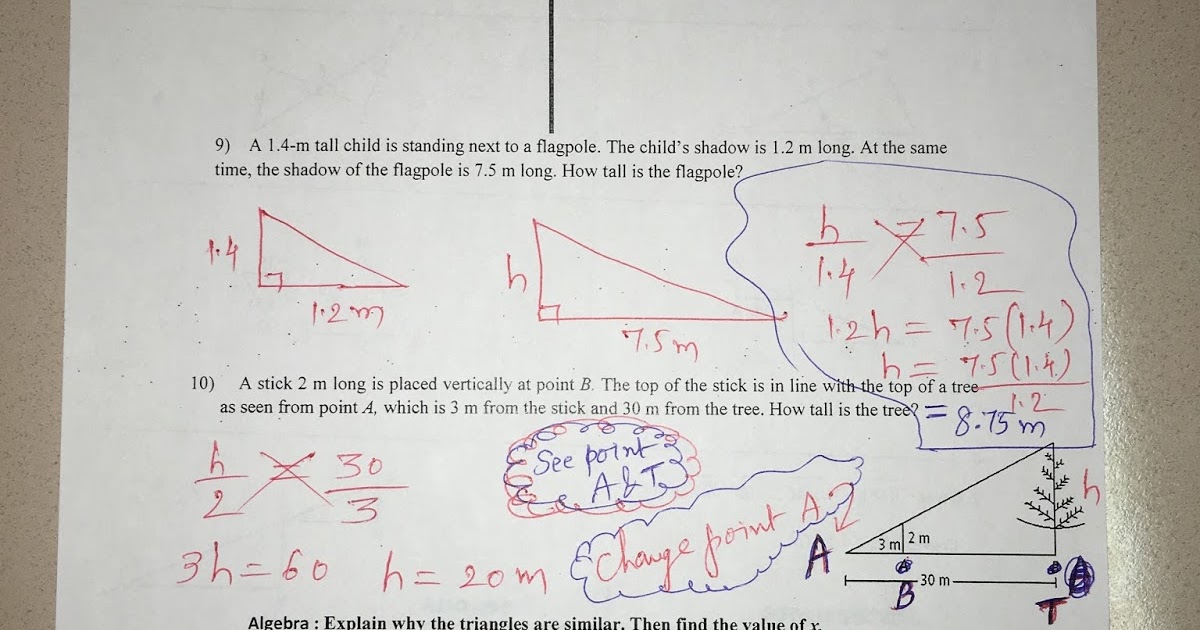 9) A 1.4-m tall child is standing next to a flagpole. The child's shadow is 1.2 m long. At the same
time, the shadow of the flagpole is 7.5 m long. How tall is the flagpole?
1.4
1.2 m
h
7.5 m
h/1.4 = 7.5/1.2
1.2h = 7.5(1.4)
h = 7.5(1.4)/1.2
= 8.75 m
10) A stick 2 m long is placed vertically at point B. The top of the stick is in line with the top of a tree
as seen from point A, which is 3 m from the stick and 30 m from the tree. How tall is the tree?
h/2 = 30/3
3h = 60 h = 20 m
See point
A & T
Change point A?
A
3 m
2 m
h
30 m
B
T
Algebra : Explain why the triangles are similar. Then find the value of x.